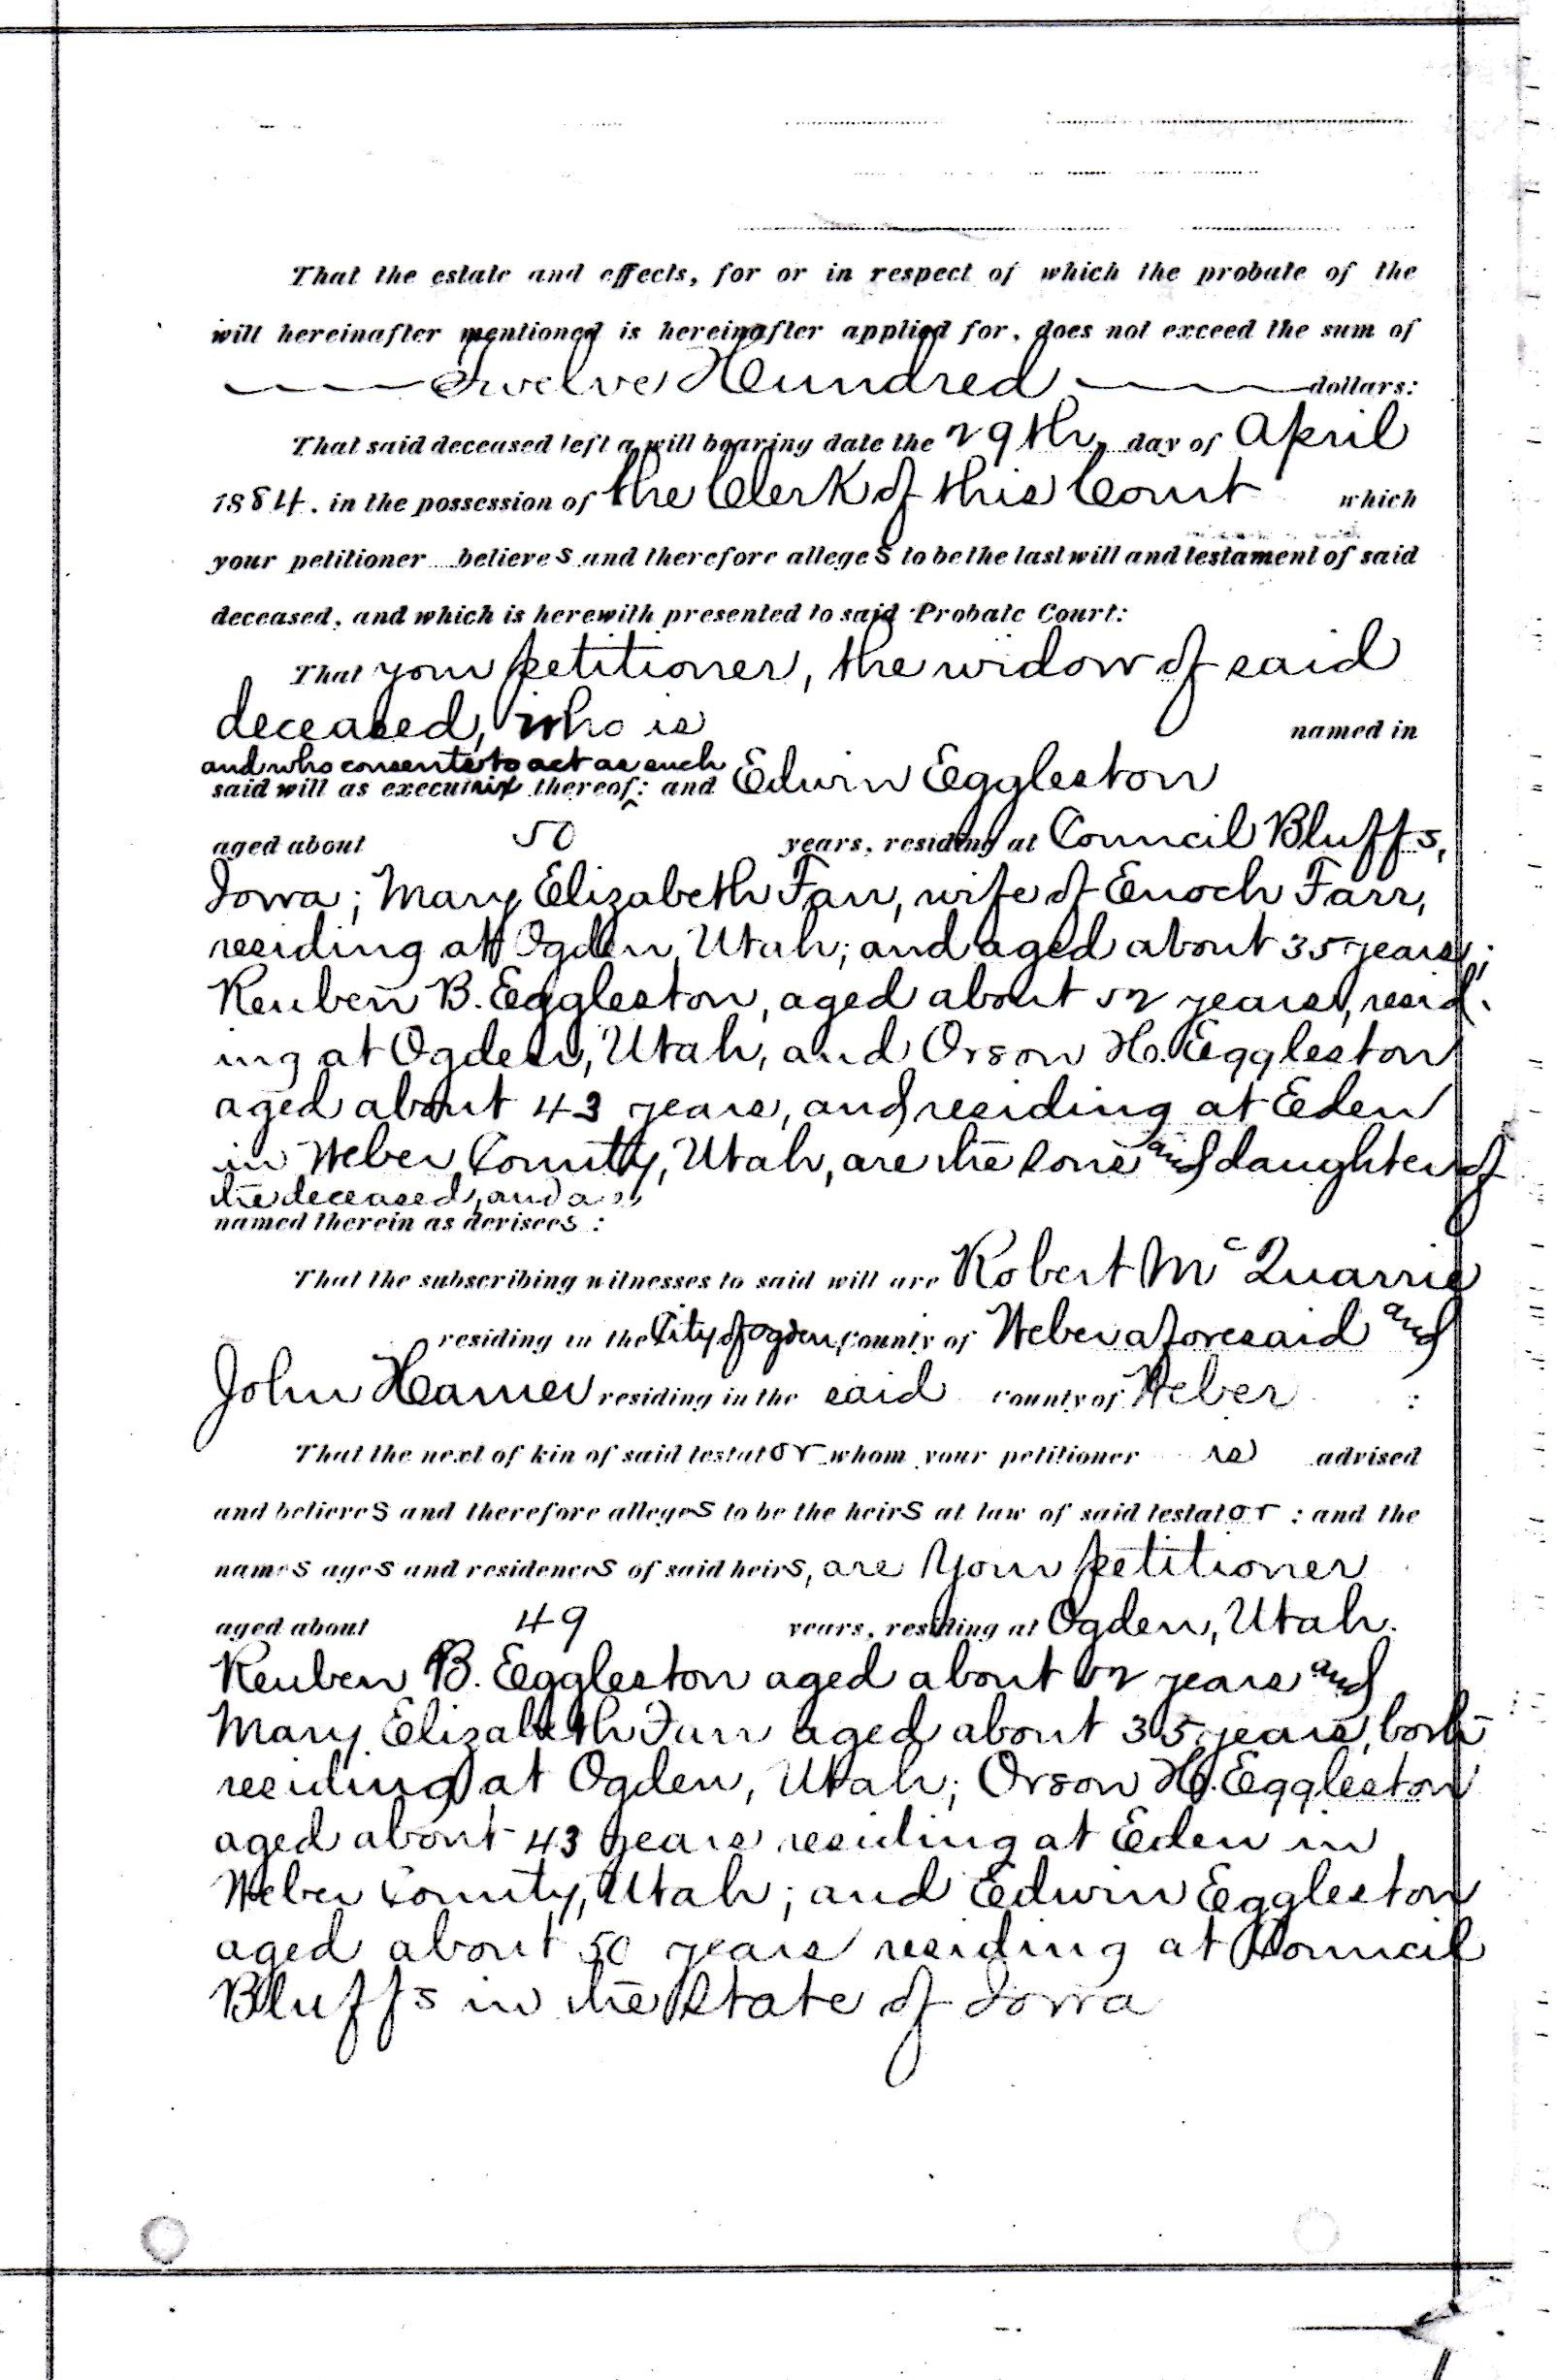 That the estate and effects, for or in respect of which the probate of the
will hereinafter mentioned is hereinafter applied for, does not exceed the sum of
Twelve Hundred dollars:
That said deceased left a will bearing date the 29th, day of April
1884. in the possession of the Clerk of this Court which
your petitioner believes and therefore alleges to be the last will and testament of said
deceased, and which is herewith presented to said Probate Court:
That your petitioner, the widow of said
deceased, who is named in
and who consents to act as such
said will as executrix thereof: and Edwin Eggleston
aged about 50 years, residing at Council Bluffs,
Iowa; Mary Elizabeth Farr, wife of Enoch Farr,
residing at Ogden, Utah; and aged about 35 years;
Reuben B. Eggleston, aged about 52 years, resid-
ing at Ogden, Utah, and Orson H. Eggleston
aged about 43 years, and residing at Eden
in Weber County, Utah, are the sons and daughter of
the deceased, and are
named therein as devisees:
That the subscribing witnesses to said will are Robert McQuarrie
residing in the City of Ogden, County of Weber aforesaid and
John Hamer residing in the said County of Weber :
That the next of kin of said testator whom your petitioner is advised
and believes and therefore alleges to be the heirs at law of said testator: and the
names ages and residences of said heirs, are Your petitioner
aged about 49 years, residing at Ogden, Utah.
Reuben B. Eggleston aged about 52 years and
Mary Elizabeth Farr aged about 35 years, both
residing at Ogden, Utah; Orson H. Eggleston
aged about 43 years residing at Eden in
Weber County, Utah; and Edwin Eggleston
aged about 50 years residing at Council
Bluffs in the State of Iowa